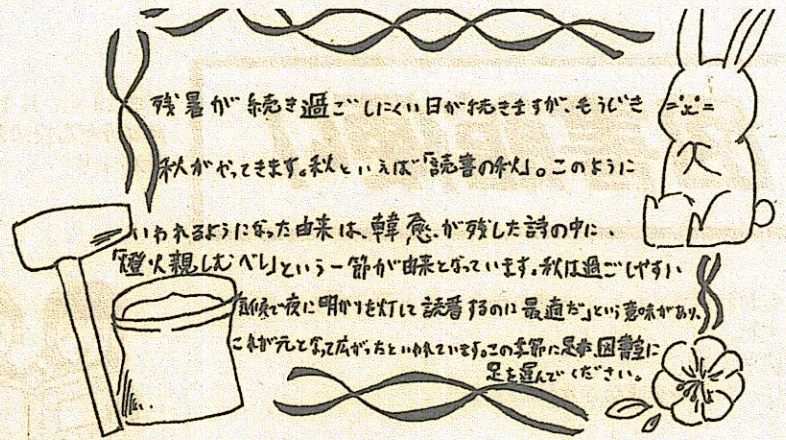 残暑が続き過ごしにくい日が続きますが、もうじき
秋がやってきます。秋といえば「読書の秋」。このように
いわれるようになった由来は、韓愈が残した詩の中に、
「燈火親しむべし」という一節が由来となっています。秋は過ごしやすい
気候で夜に明かりを灯して読書するのに最適だ」という意味があり、
これが元となって広がったといわれています。この季節に是非、図書室に
足を運んでください。